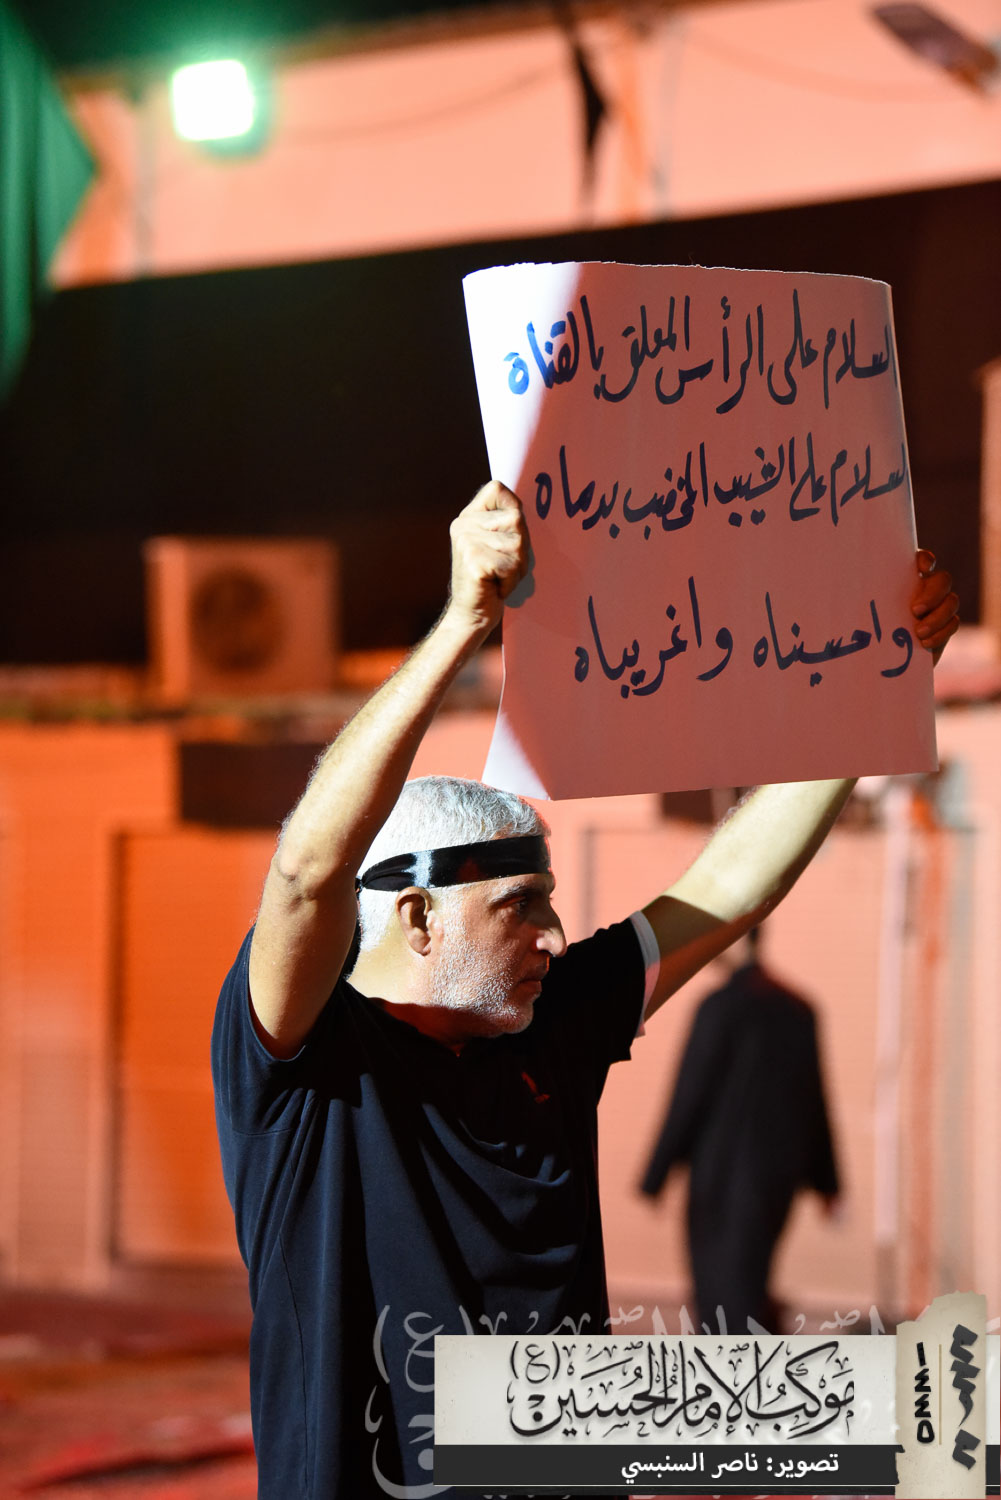 السلام على الرأس المعلق بالقناة
السلام على الشيب المخضب بدماه
واحسيناه واغريباه
موكب الإمام الحسين (ع)
تصوير: ناصر السنبسي